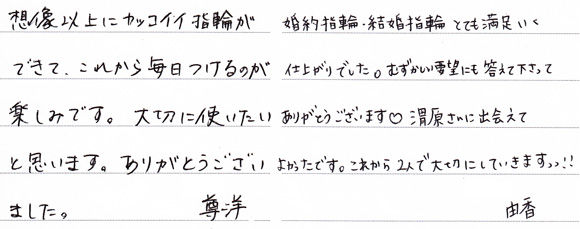 想像以上にカッコイイ指輪が
できて、これから毎日つけるのが
楽しみです。大切に使いたい
と思います。ありがとうござい
ました。 尊洋
婚約指輪・結婚指輪とても満足いく
仕上がりでした。むずかしい要望にも答えて下さって
ありがとうございます♡ 渭原さんに出会えて
よかったです。これから2人で大切にしていきますっっ!!
由香